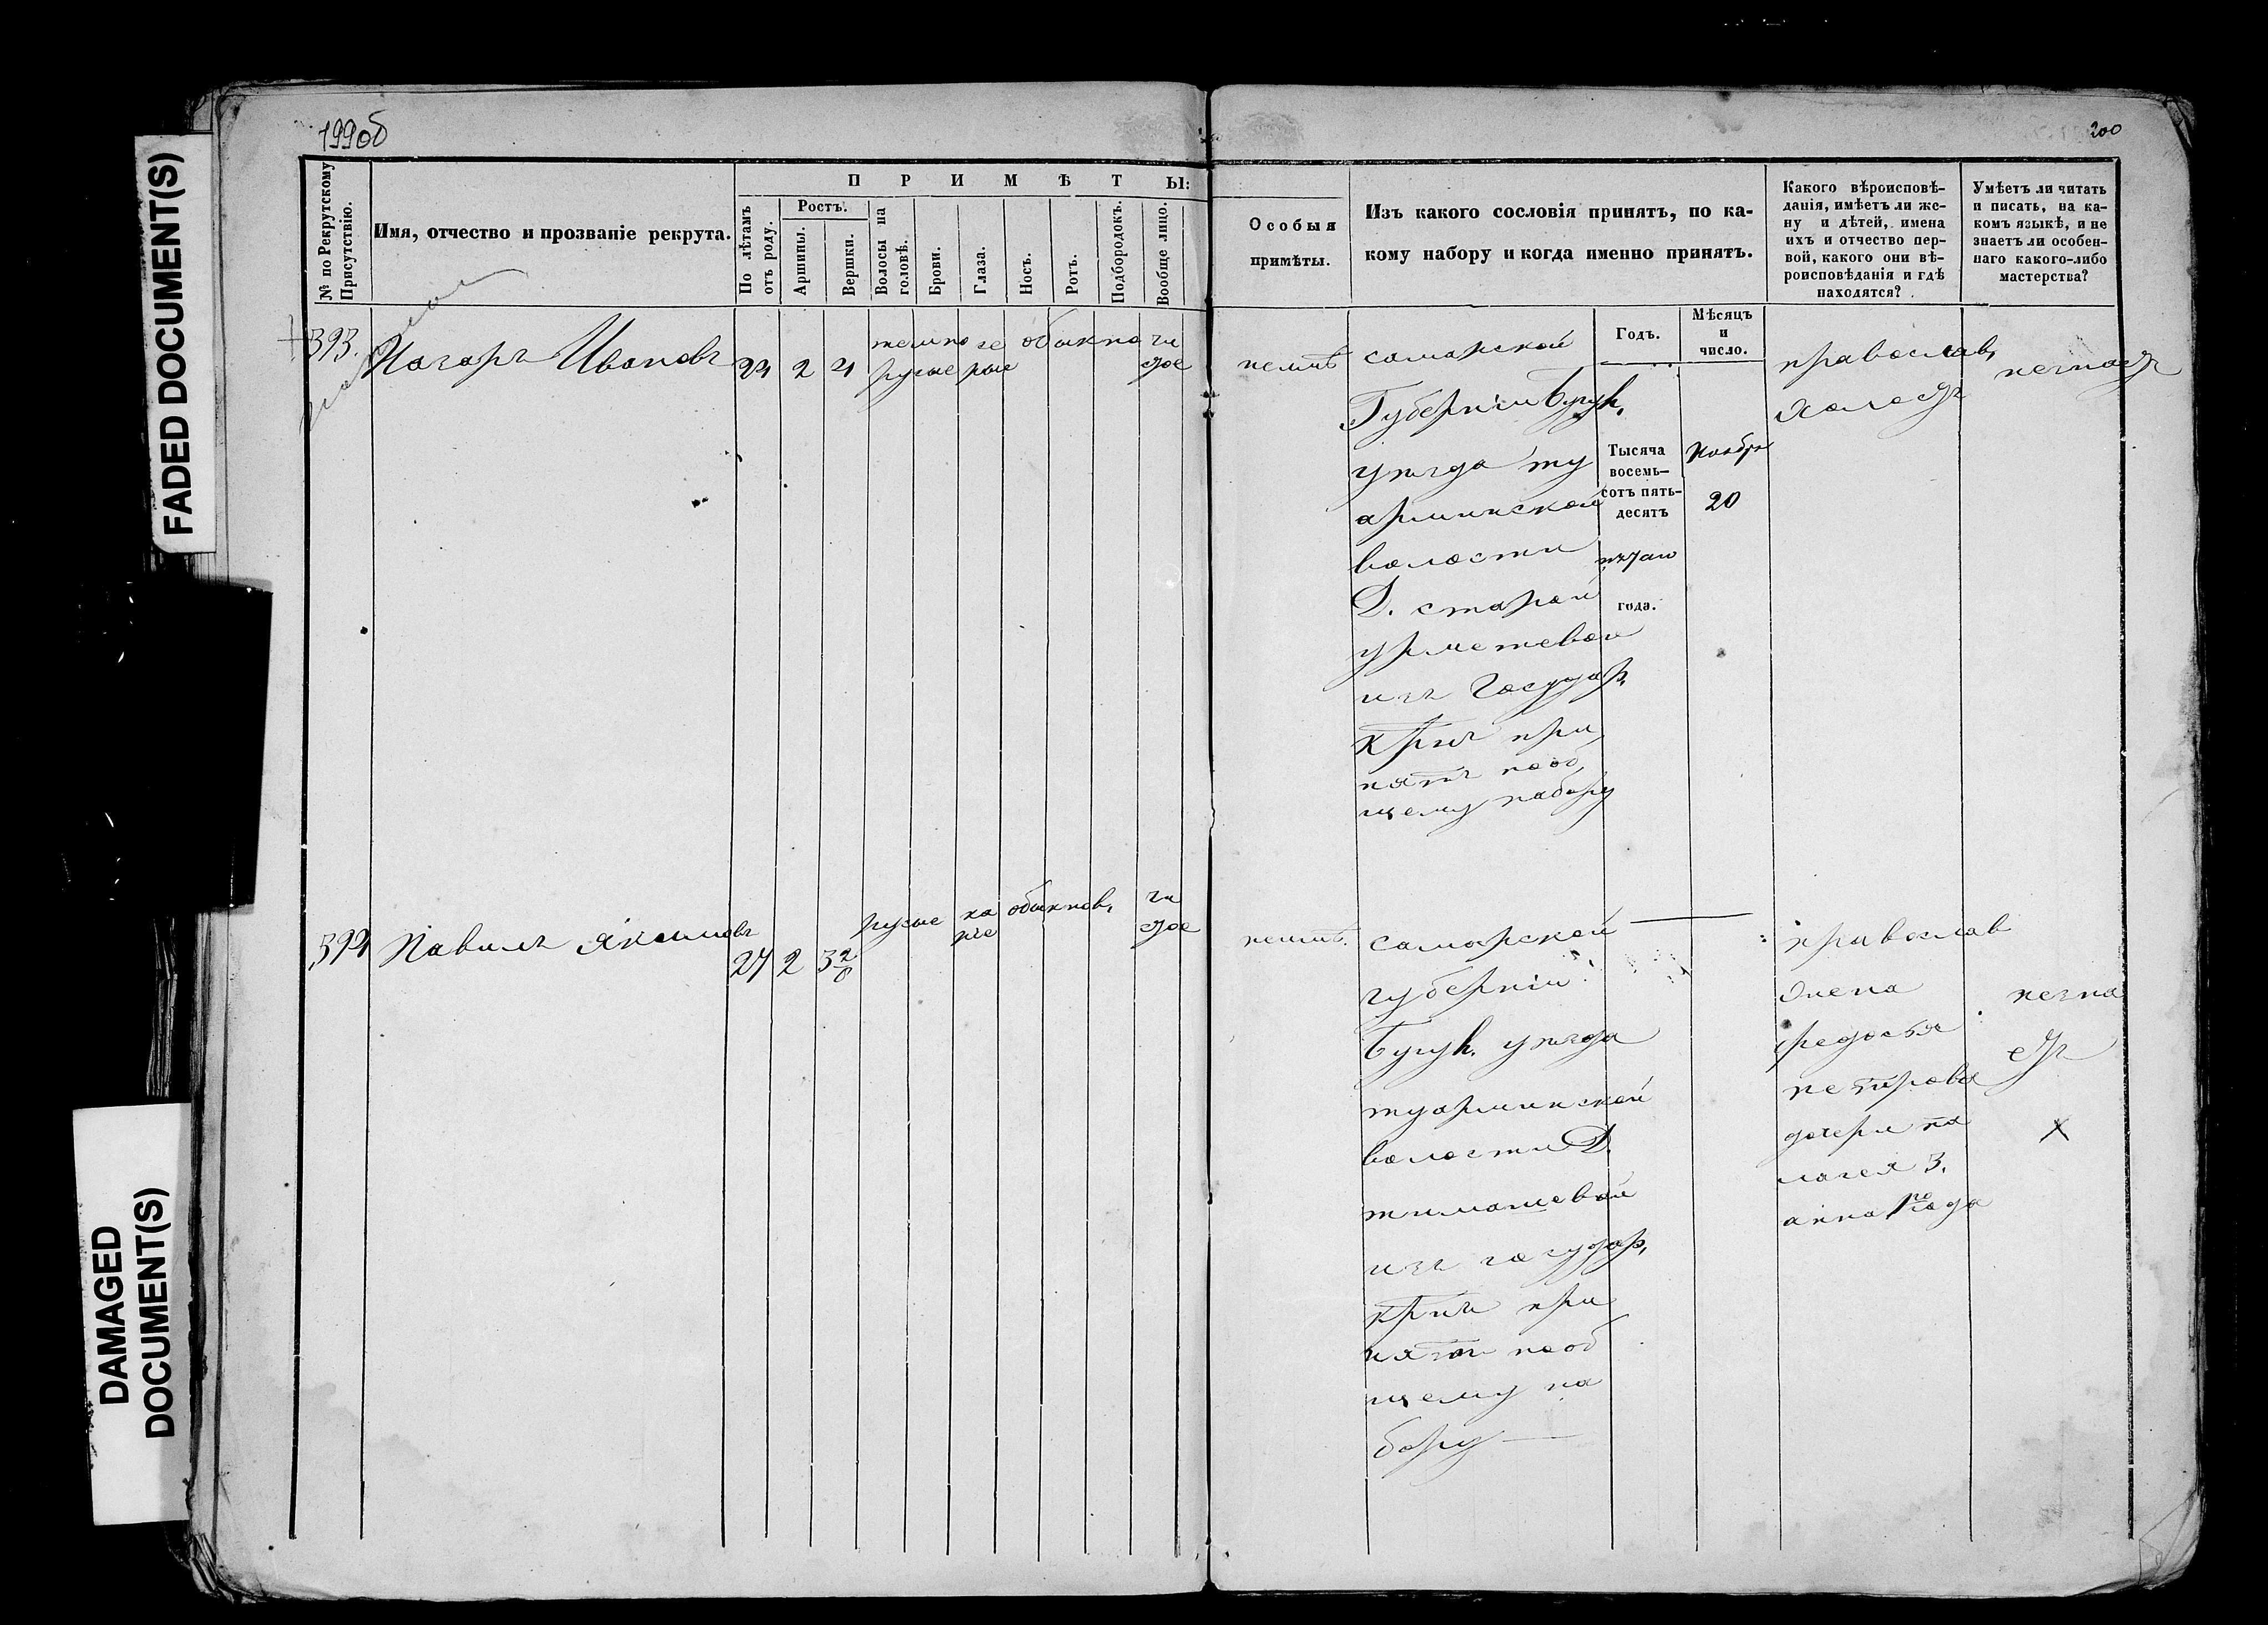 FADED DOCUMENT(S)
DAMAGED
DOCUMENT(S)
199об
200
№ по Рекрутскому
Присутствію.
Имя, отчество и прозваніе рекрута.
П Р И М Ѣ Т Ы:
По лѣтамъ
отъ роду.
Ростъ.
Аршины.
Вершки.
Волосы на
головѣ.
Брови.
Глаза.
Носъ.
Ротъ.
Подбородокъ.
Вообще лицо.
Особыя
примѣты.
Изъ какого сословія принятъ, по ка-
кому набору и когда именно принятъ.
Какого вѣроисповѣ-
данія, имѣетъ ли же-
ну и дѣтей, имена
ихъ и отчество пер-
вой, какого они вѣ-
роисповѣданія и гдѣ
находятся?
Умѣетъ ли читать
и писать, на ка-
комъ языкѣ, и не
знаетъ ли особен-
наго какого-либо
мастерства?
393.
Назаръ Ивановъ
24
2
4
темно
русые
се
рые
обыкно
чи
стое
неимѣ
самарской
Губерніи Бугул.
уѣзда ту
арминской
волости
Д. старой
урметевой
изъ Государ.
Крнъ при
нятъ пооб
щему набору
Годъ.
Тысяча
восемь-
сотъ пять-
десятъ
пятаго
года.
Мѣсяцъ
и
число.
Ноября
20
православ.
холостъ
незнаетъ
394
Павилъ Якимовъ
27
2
3 2/8
русые
ка
ріе
обыкнов.
чи
стое
неимѣ.
самарской
губерніи
Бугул. уѣзда
туарминской
волости Д.
тимашевой
изъ государ.
крнъ при
нятъ пооб
щему на
бору
православ
Жена
федосья
петрова
дочери пе
лагея 3.
анна 1го года
незна
етъ